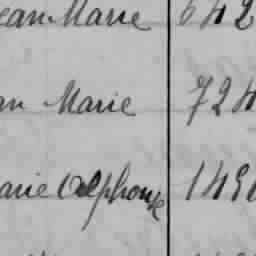 ean Marie 642
an Marie 724
arie Alphonse 149